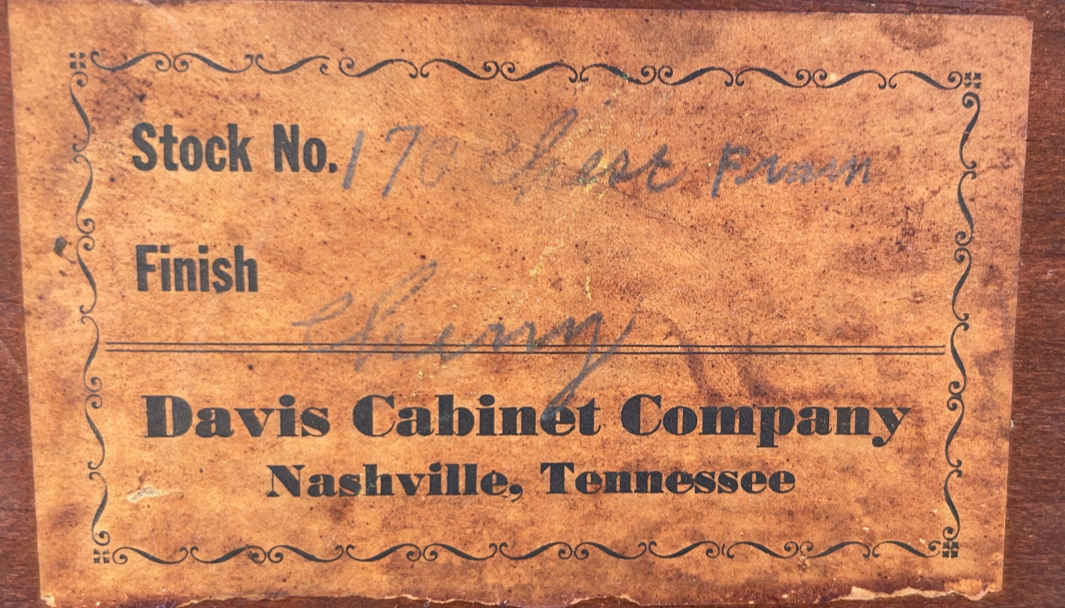 Stock No. 170 Chest Fram
Finish Cherry
Davis Cabinet Company
Nashville, Tennessee